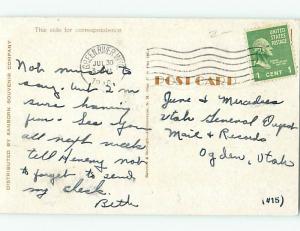 This side for correspondence
GREEN RIVER
JUL 30
POST CARD
1 CENT 1
Not much to
say, but I'm
sure having
fun - See you
all next week
tell Henery not
to forget to send
my check.
Beth
June & Mercedes
Utah General Depot
Mail & Records
Ogden, Utah
(#15)
DISTRIBUTED BY SANBORN SOUVENIR COMPANY